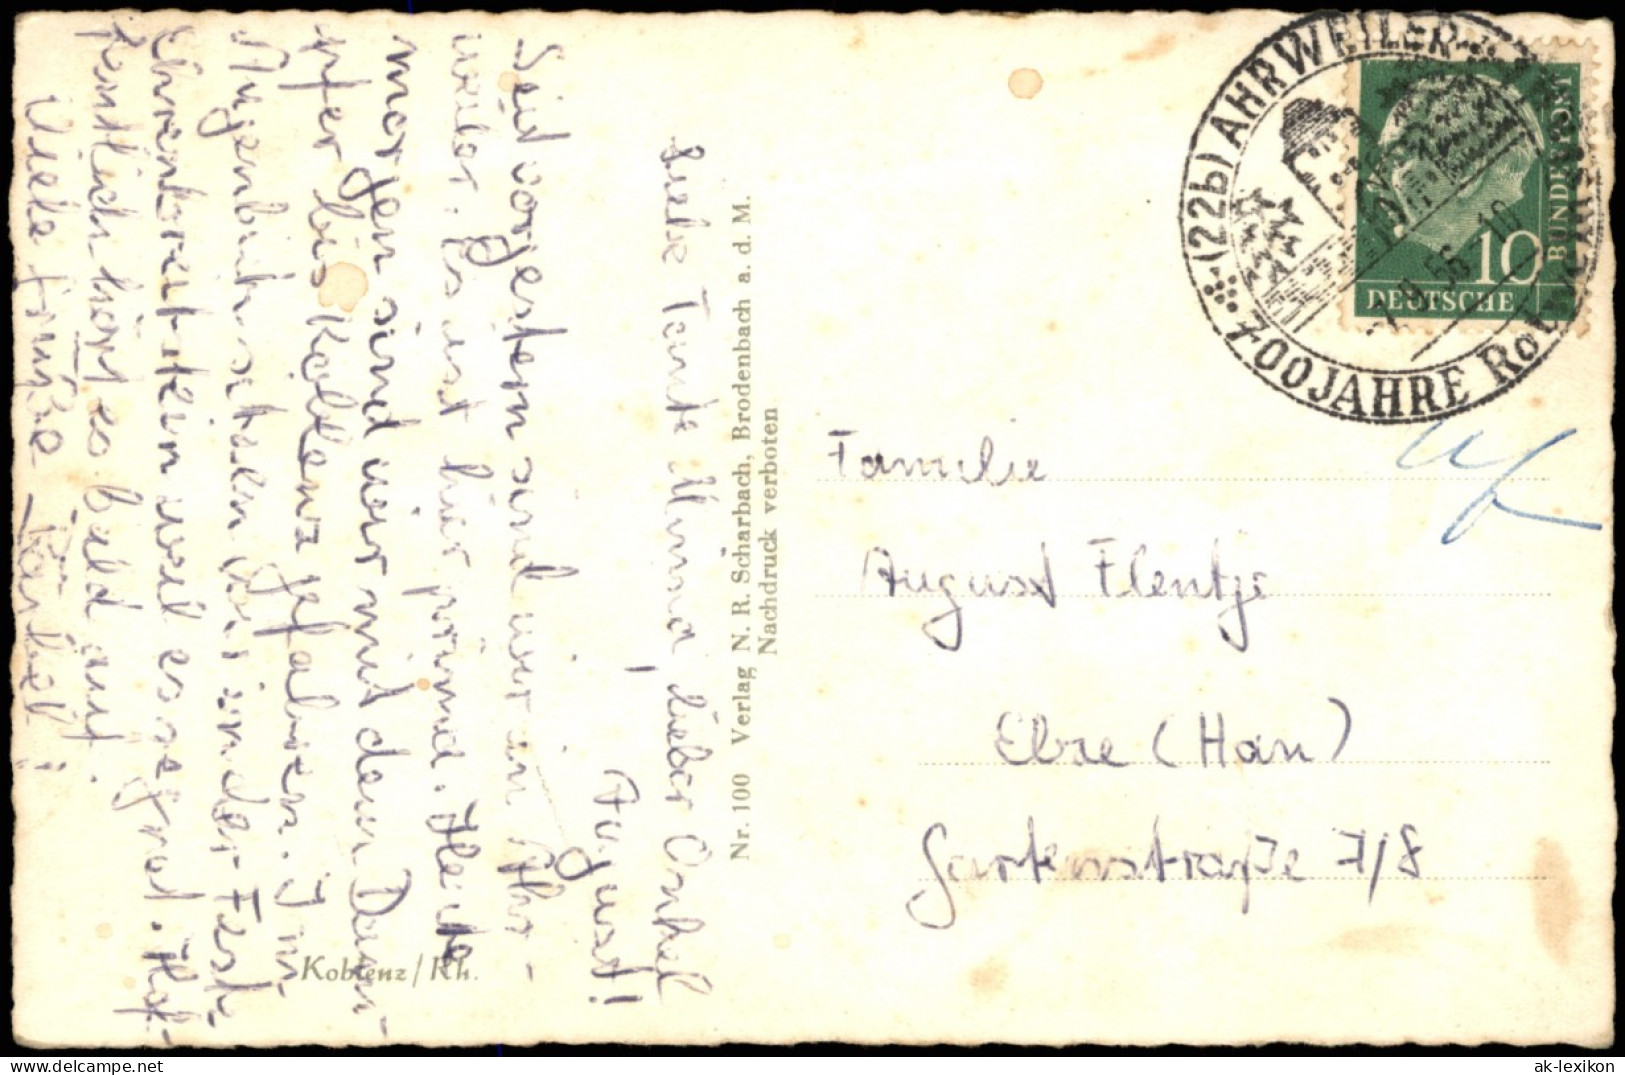 Liebe Tante Minna, lieber Onkel
August!
Seid vorgestern sind wir in Ahr-
weiler. Es ist hier prima. Heute
morgen sind wir mit dem Dam-
pfer bis Koblenz gefahren. Im
Augenblick sitzen wir in der Fest.
Ehrenbreitstein weil es regnet. Hof-
fentlich hört es bald auf.
Viele Grüße Bärbel!
Koblenz/Rh.
Nr. 100 Verlag N. R. Scharbach, Brodenbach a. d. M.
Nachdruck verboten
(22b) AHRWEILER
700 JAHRE Rot
7.9.56.-19
DEUTSCHE
BUNDESPOST
10
Familie
August Flentje
Elze (Han)
Gartenstraße 7/8
ak-lexikon